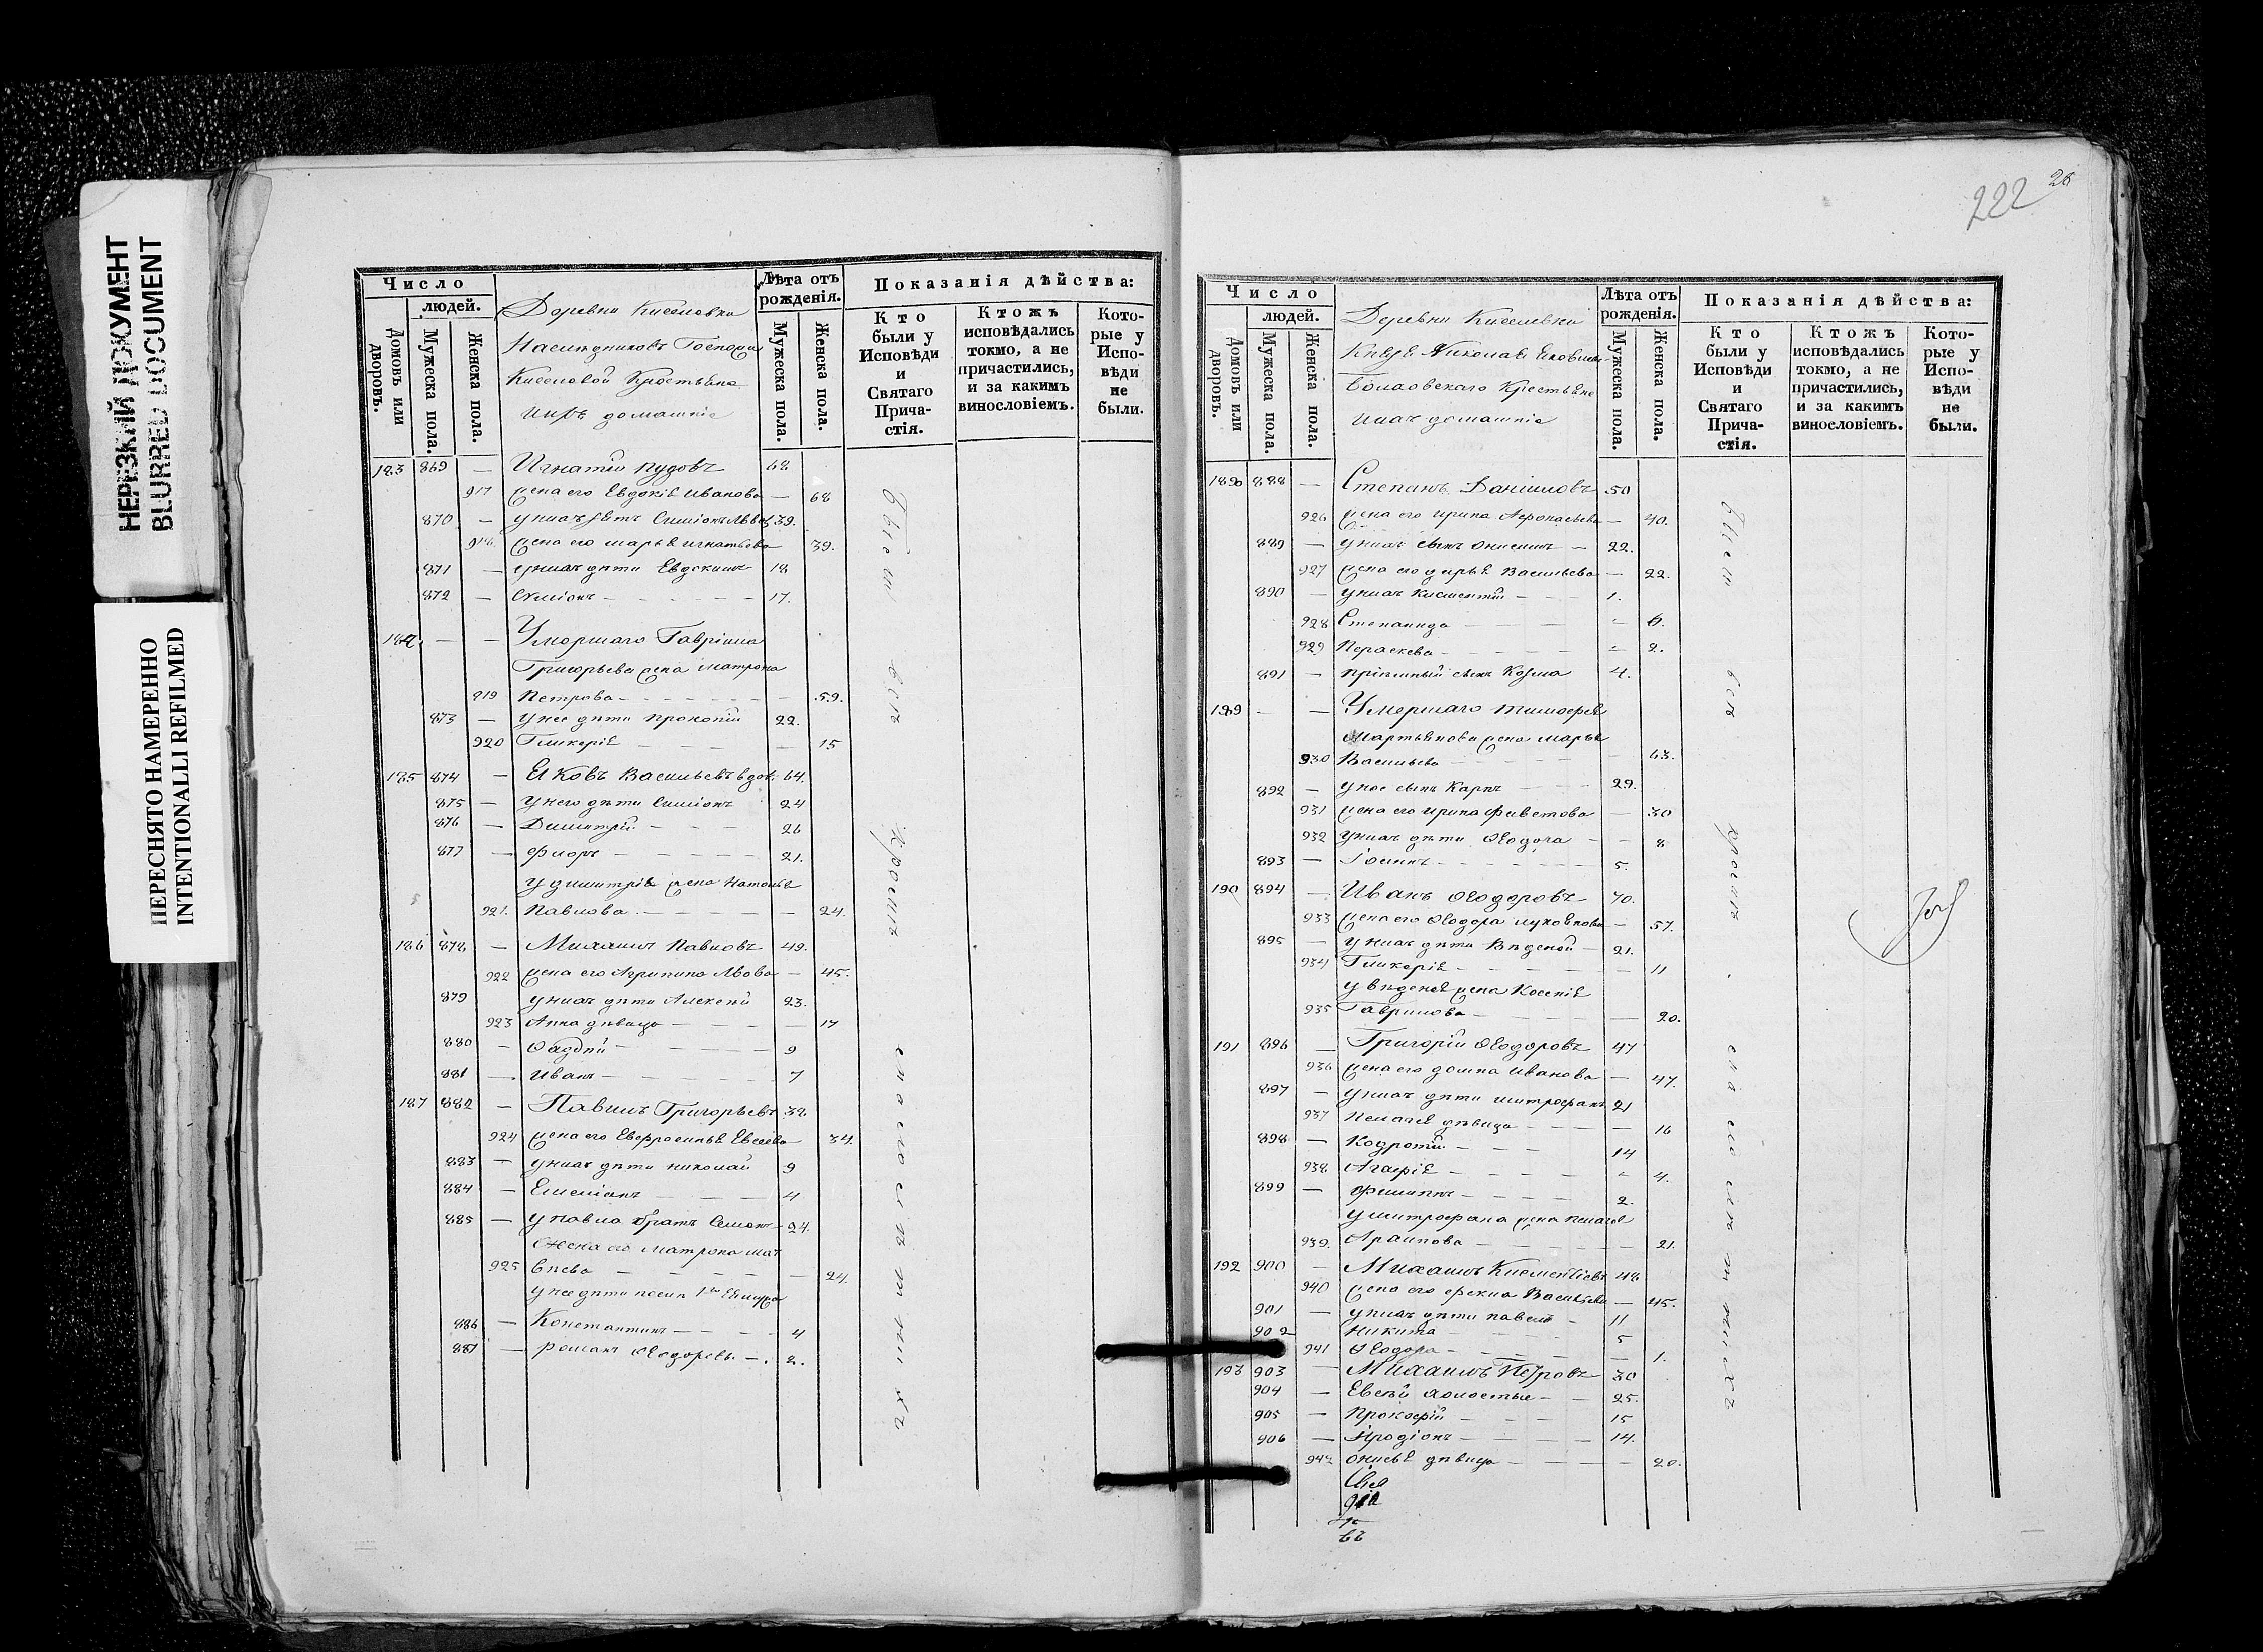 НЕРЕЗКИЙ ДОКУМЕНТ
BLURRED DOCUMENT
ПЕРЕСНЯТО НАМЕРЕННО
INTENTIONALLI REFILMED
Число
людей.
Домовъ или дворовъ.
Мужеска пола.
Женска пола.
Деревни Киселевки
Наследниковъ Госпожи
Киселевой Крестьяне
ихъ домашніе
Лѣта отъ рожденія.
Мужеска пола.
Женска пола.
Показанія дѣйства:
Кто были у Исповѣди и Святаго Причастія.
Ктожъ исповѣдались токмо, а не причастились, и за какимъ винословіемъ.
Которые у Исповѣди не были.
183 869 — Игнатій Пудовъ 68
917 жена его Евдокія Иванова — 68
870 — у нихъ зять Симіонъ Львовъ 39.
918 жена его Марья Игнатьева 39.
871 — у нихъ дѣти Евдокимъ 18
872 — Симіонъ 17.
184. — — Умершаго Гавріила
Григорьева жена Матрона
919 Петрова — 59.
873 — у нее дѣти Прокопій 22.
920 Гликерія — 15
185 874 — Яковъ Васильевъ вдов. 64.
875 — у него дѣти Симіонъ 24
876 — Димитрій 26
877 — Флоръ 21.
у Димитрія жена Наталья
921. Павлова — 24.
186 878 — Михаилъ Павловъ 49.
922 жена его Агрипина Львова — 45.
879 у нихъ дѣти Алексѣй 23.
923 Анна дѣвица — 17
880 — Фаддѣй 9
881 — Иванъ 7
187 882 — Павелъ Григорьевъ 32
924 жена его Евфросинья Евсеева 34.
883 — у нихъ дѣти Николай 9
884 — Емеліанъ 4
885 — у Павла братъ Семенъ 24.
Жена его Матрона Мат
925 вѣева — 24.
у нее дѣти
886 — Константинъ 4
887 — Романъ Ѳеодоровъ 2.
Были
всѣ
кромѣ
малолѣтнихъ
222 28
Число
людей.
Домовъ или дворовъ.
Мужеска пола.
Женска пола.
Деревни Киселевки
Князя Николая Яковлев
Голаовскаго Крестьяне
ихъ домашніе
Лѣта отъ рожденія.
Мужеска пола.
Женска пола.
Показанія дѣйства:
Кто были у Исповѣди и Святаго Причастія.
Ктожъ исповѣдались токмо, а не причастились, и за какимъ винословіемъ.
Которые у Исповѣди не были.
188 888 — Степанъ Даніиловъ 50
926 жена его Ирина Афонасьева — 40.
889 — у нихъ сынъ Онисимъ — 22.
927 жена его Дарья Васильева — 22.
890 — у нихъ Климентій 1.
928 Степанида 6.
929 Параскева 2.
891 — пріемный сынъ Козма 4.
189 — — Умершаго Тимофея
Мартьянова жена Марья
930 Васильева — 63.
892 — у нее сынъ Карпъ 29.
931 жена его Ирина — 30
932 у нихъ дѣти Ѳеодора — 8
893 — Іоаннъ 5.
190 894 — Иванъ Ѳеодоровъ 70.
933 жена его Ѳеодора Лукьянова — 57.
895 — у нихъ дѣти 21.
934 Гликерія — 11
жена Ксенія
935 Гаврилова — 20.
191 896 — Григорій Ѳеодоровъ 47
936 жена его Домна Иванова — 47.
897 — у нихъ дѣти Митрофанъ 21
937 Пелагея дѣвица — 16
898 — Кодротій 14
938 Агафія 4.
899 — Филиппъ 2.
у Митрофана жена Пелагея
939. Архипова — 21.
192 900 — Михаилъ Климентіевъ 48
940 жена его Фекла Васильева — 45.
901 — у нихъ дѣти Павелъ 11
902 Никита 5
941 Ѳеодора — 1.
193 903 — Михаилъ Петровъ 30
904 — Евсѣй холостые — 25.
905 — Прокофій 15
906 — Иродіонъ 14.
942 дѣвица — 20.
Были
всѣ
кромѣ
малолѣтнихъ